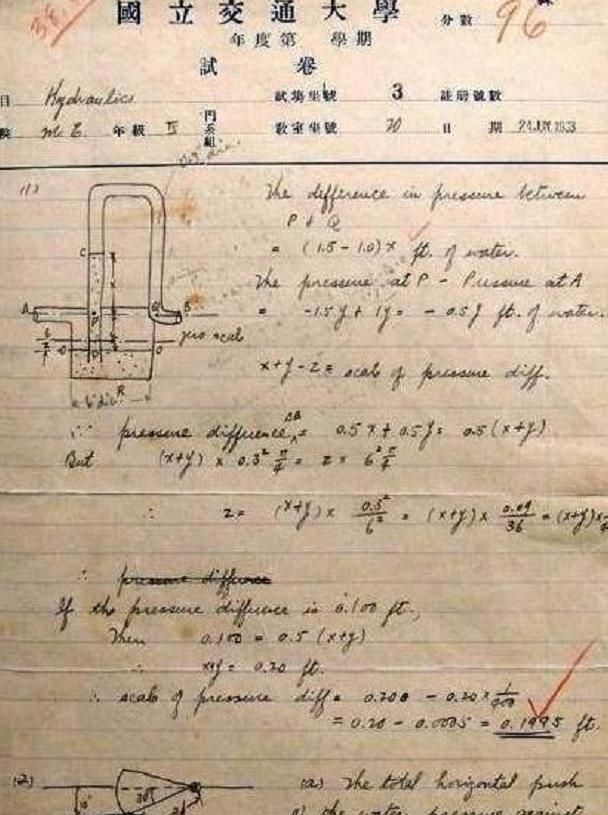 國立交通大學
年度第 學期
試卷
分數 96
目 Hydraulics 試場坐號 3 註册號數
M.E. 年級 IV 門系組 教室坐號 20 日期 24 JUN 1933
(1)
The difference in pressure between
P + Q
= (1.5 - 1.0)x ft. of water.
The pressure at P - Pressure at A
= -1.5y + 1y = -0.5y ft. of water.
zero scale
x+y-z = scale of pressure diff.
C
A
B
O
O
R
6" dia.
∵ pressure difference AB = 0.5x + 0.5y = 0.5(x+y)
But (x+y) x 0.3² π/4 = z x 6² π/4
∴ z = (x+y) x 0.3²/6² = (x+y) x 0.09/36 = (x+y) x
∴ pressure difference
If the pressure difference is 0.100 ft.,
Then 0.100 = 0.5 (x+y)
∴ x+y = 0.20 ft.
∴ scale of pressure diff = 0.200 - 0.20 x 1/400
= 0.20 - 0.0005 = 0.1995 ft.
(2)
(a) The total horizontal push
of the water pressure against